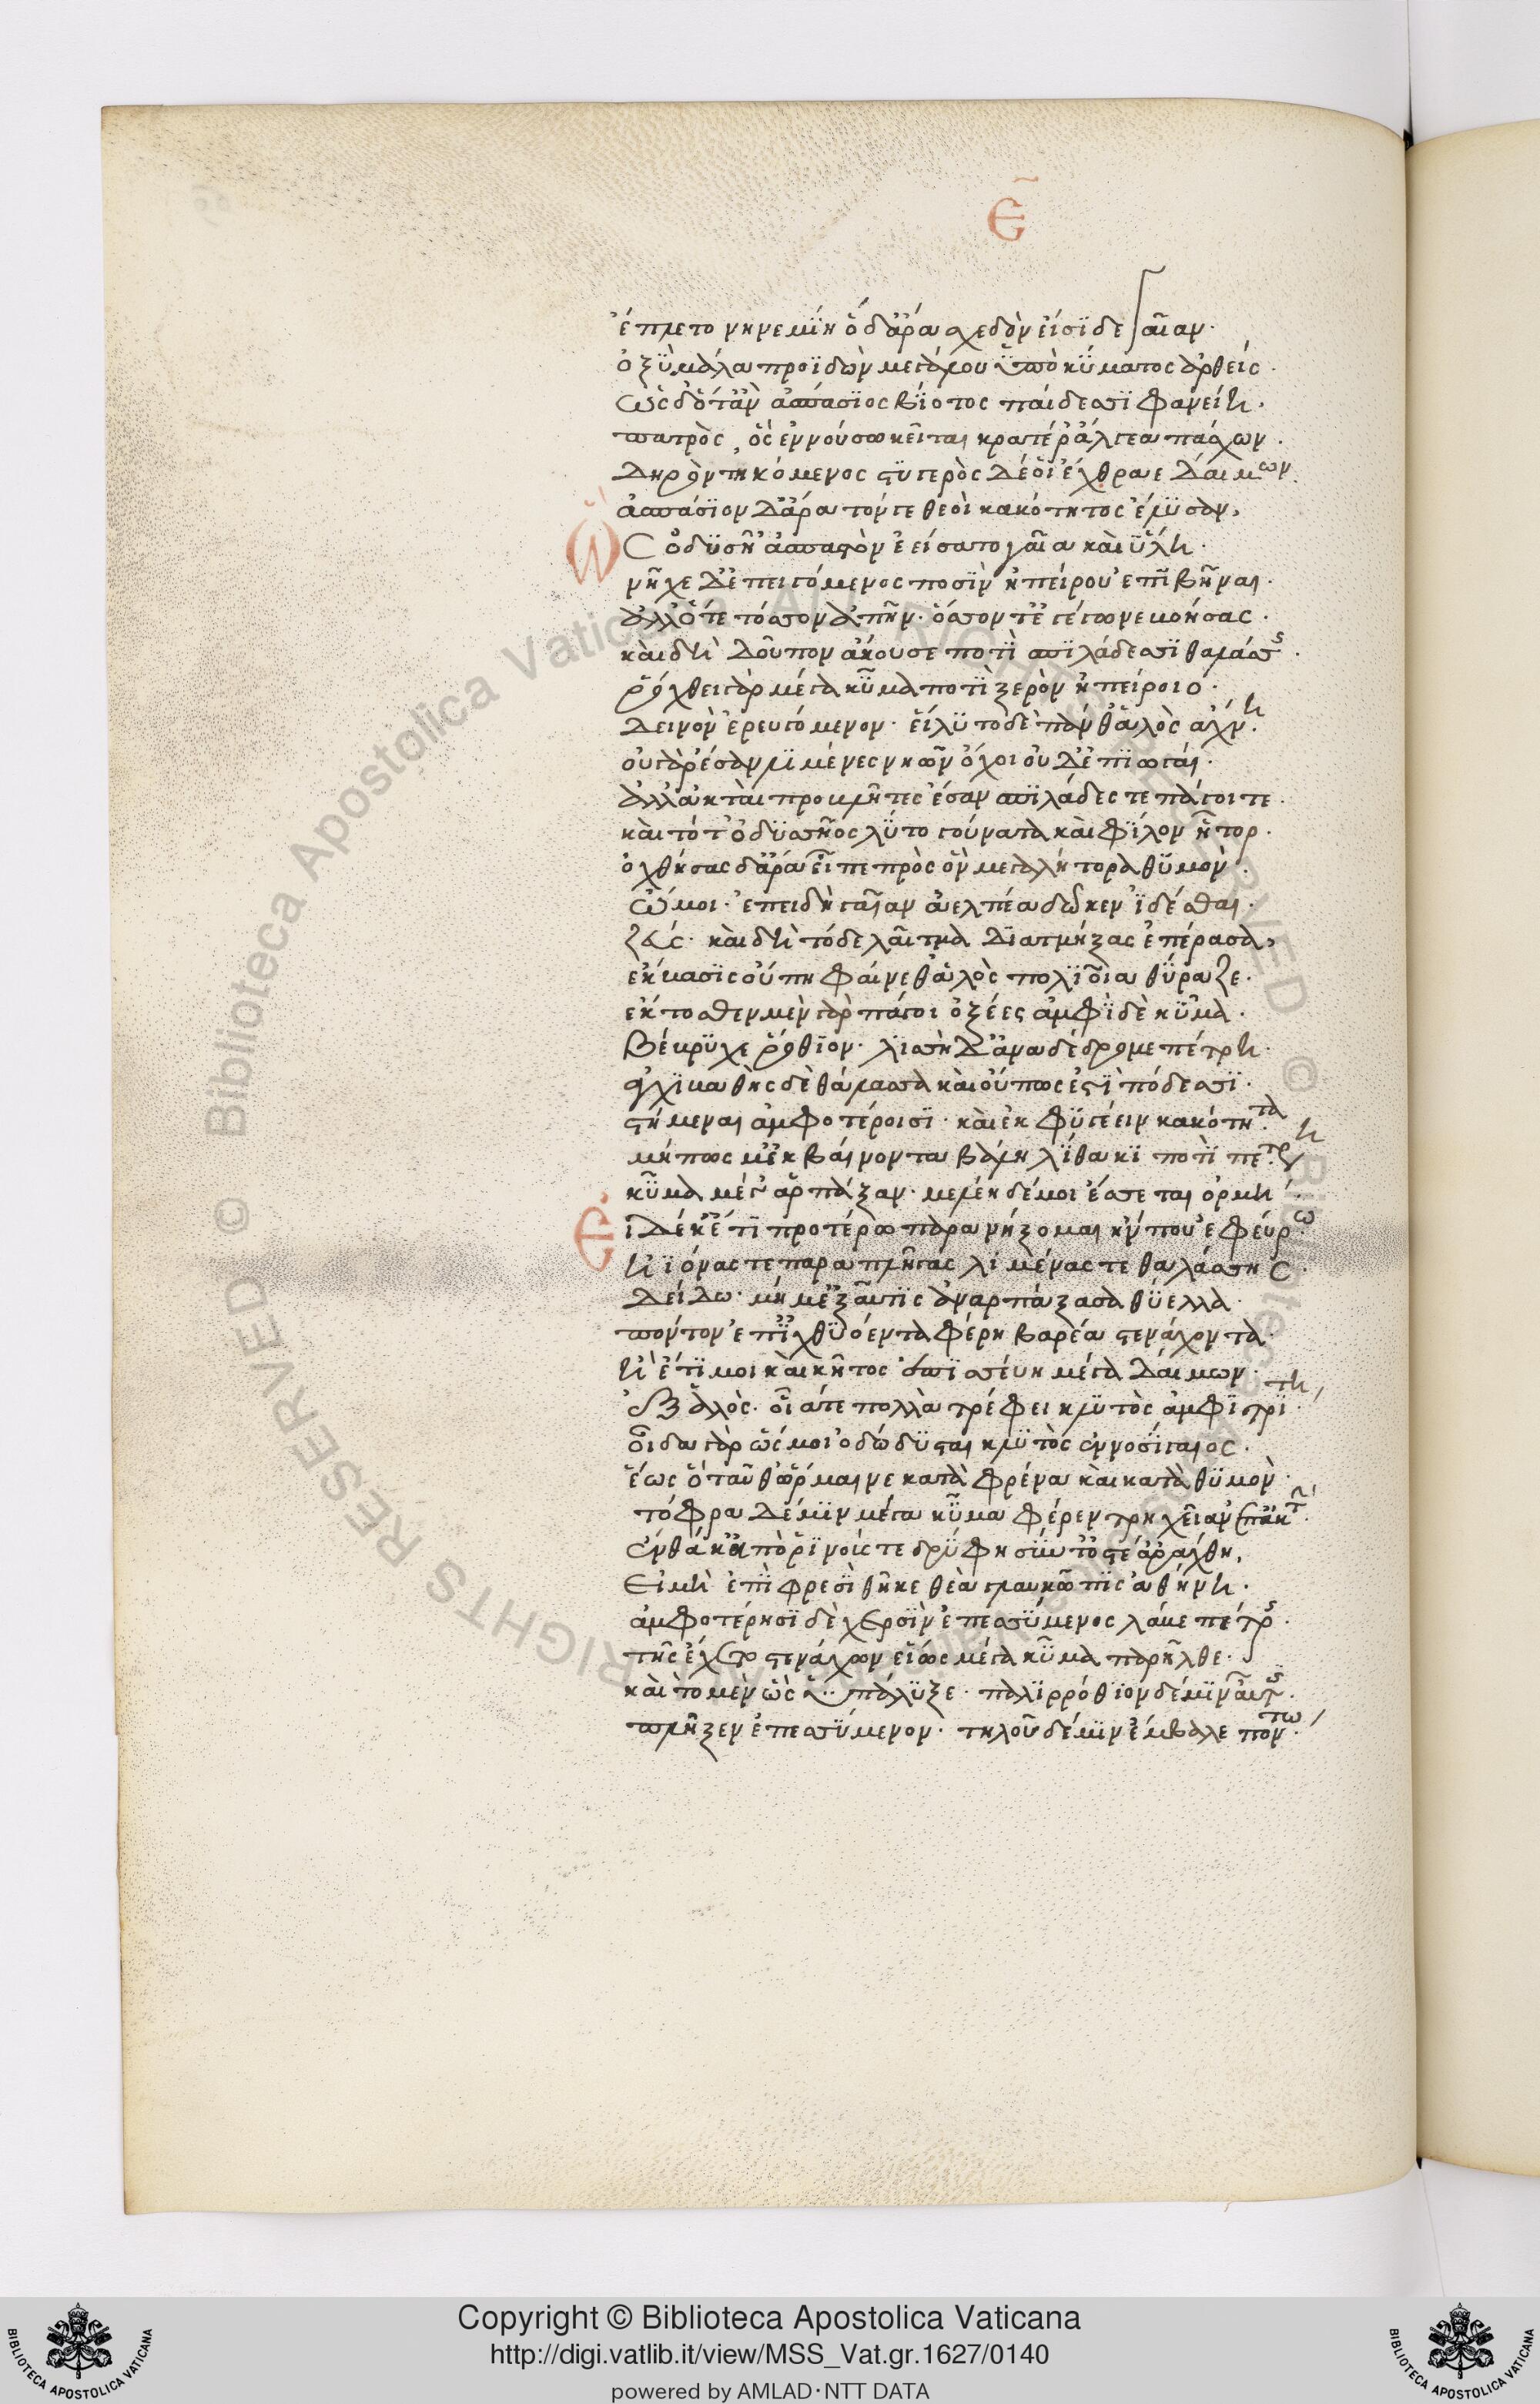 Ε̃
ἔπλετο νηνεμίη ὃ δ' ἄρα σχεδὸν εἴσϊδε γαῖαν·
ὀξῢ μάλα προϊδὼν μεγάλου ὑπὸ κύματος ἀρθείς·
ὡς δ' ὅτ' ἂν ἀσπάσϊος βΐοτος παίδεσσϊ φανείη·
πατρὸς, ὃς ἐν νούσω κεῖται κρατέρ' ἄλγεα πάσχων·
δηρὸν τηκόμενος στϋγερὸς δέ οἱ ἔχραε δαίμων·
ἀσπάσϊον δ' ἄρα τόν γε θεοὶ κακότητος ἔλϋσαν,
Ὣς ὀδϋσῆ' ἀσπαστὸν ἐείσατο γαῖα καὶ ὕλη·
νῆχε δ' ἐπειγόμενος ποσῒν ἠπείρου ἐπῒ βῆναι·
ἀλλ' ὅτε τόσσον ἀπῆν· ὅσσον τε γέγωνε βοήσας·
καὶ δὴ δοῦπον ἄκουσε ποτῒ σπϊλάδεσσϊ θαλάσσης·
ῥόχθει γὰρ μέγα κῦμα ποτῒ ξερὸν ἠπείροιο·
δεινὸν ἐρευγόμενον· εἴλϋτο δὲ πάνθ' ἁλὸς ἄχνη·
οὐ γὰρ ἔσαν λϊμένες νηῶν ὄχοι οὐδ' ἐπϊωγαί·
ἀλλ' ἀκταὶ προβλῆτες ἔσαν σπϊλάδες τε πάγοι τε·
καὶ τότ' ὀδϋσσῆος λύτο γούνατα καὶ φΐλον ἦτορ·
ὀχθήσας δ' ἄρα εἶπε πρὸς ὃν μεγαλήτορα θϋμὸν·
ὤμοι· ἐπειδὴ γαῖαν ἀελπέα δῶκεν ἰδέσθαι·
ζεύς· καὶ δὴ τόδε λαῖτμα διατμήξας ἐπέρασα,
ἔκβασϊς οὔπη φαίνεθ' ἁλὸς πολϊοῖο θύραζε·
ἔκτοσθεν μὲν γὰρ πάγοι ὀξέες ἀμφῒ δὲ κῦμα·
βέβρϋχε ῥόθϊον· λϊσσὴ δ' ἀναδέδρομε πέτρη·
ἀγχϊβαθὴς δὲ θάλασσα καὶ οὔπως ἐστῒ πόδεσσϊ·
στήμεναι ἀμφοτέροισϊ· καὶ ἐκφϋγέειν κακότητα·
μήπως μ' ἐκβαίνοντα βάλη λΐθακϊ ποτῒ πέτρη
κῦμα μέγ' ἁρπάξαν· μελέη δέ μοι ἔσσεται ὁρμή·
Εἰ δέ κ' ἔτϊ προτέρω παρανήξομαι ἤν που ἐφεύρω
ἠϊόνας τε παραπλῆγας λϊμένας τε θαλάσσης·
δείδω· μή μ' ἐξαῦτϊς ἀναρπάξασα θύελλα·
πόντον ἐπ' ἰχθϋόεντα φέρη βαρέα στενάχοντα·
ἢ ἔτϊ μοι καὶ κῆτος ἐπϊσσεύη μέγα δαίμων·
ἐξ ἁλὸς· οἷά τε πολλὰ τρέφει κλϋτὸς ἀμφϊτρΐτη,
οἶδα γὰρ ὥς μοι ὀδώδϋσται κλϋτὸς ἐννοσΐγαιος·
ἕως ὃ ταῦθ' ὥρμαινε κατὰ φρένα καὶ κατὰ θϋμὸν·
τόφρα δέ μϊν μέγα κῦμα φέρεν τρηχεῖαν ἐπ' ἀκτὴν·
ἔνθά κ' ἀπὸ ῥϊνούς τε δρύφθη σὺν τ' ὀστέ' ἀράχθη,
εἰ μὴ ἐπῒ φρεσῒ θῆκε θεὰ γλαυκῶπϊς ἀθήνη·
ἀμφοτέρησϊ δὲ χερσῒν ἐπεσσύμενος λάβε πέτρης·
τῆς ἔχετο στενάχων εἵως μέγα κῦμα παρῆλθε·
καὶ τὸ μὲν ὣς ὑπάλϋξε· παλϊρρόθϊον δέ μϊν αὖτις·
πλῆξεν ἐπεσσύμενον· τηλοῦ δέ μϊν ἔμβαλε πόντω
Copyright © Biblioteca Apostolica Vaticana
http://digi.vatlib.it/view/MSS_Vat.gr.1627/0140
powered by AMLAD·NTT DATA